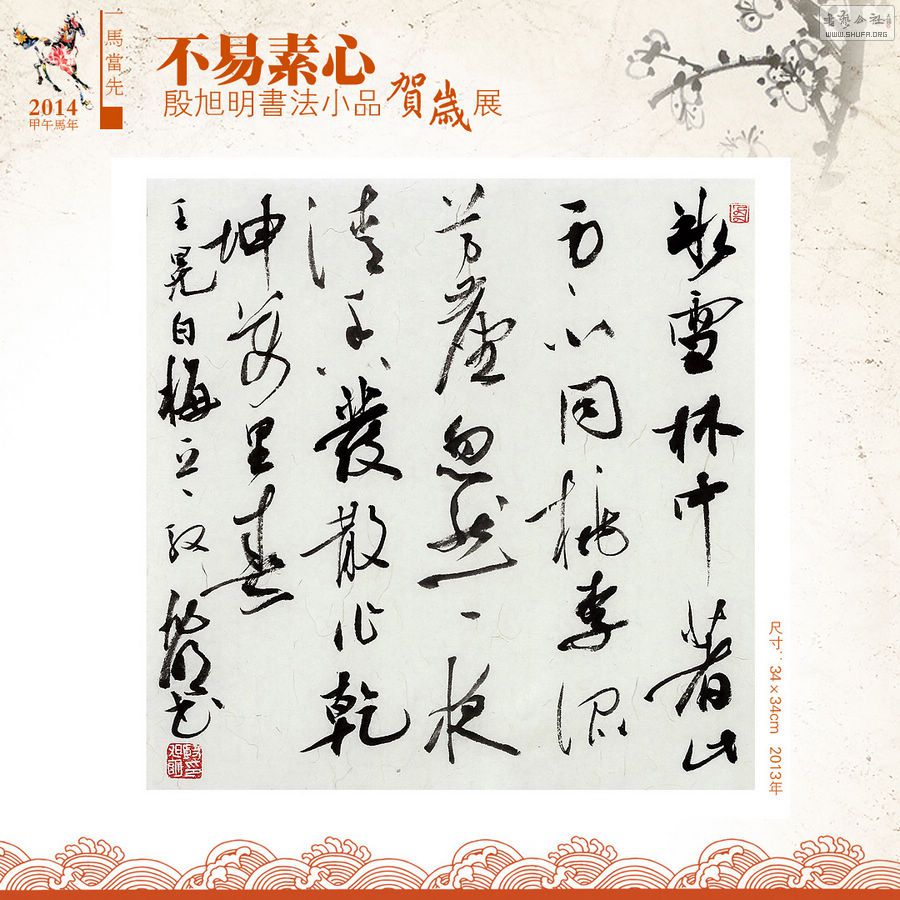 一馬當先
2014
甲午馬年
不易素心
殷旭明書法小品賀歲展
書藝公社
WWW.SHUFA.ORG
冰雪林中著此
身不同桃李混
芳塵忽然一夜
清香發散作乾
坤萬里春
王冕白梅 殷旭明書
尺寸：34×34cm 2013年